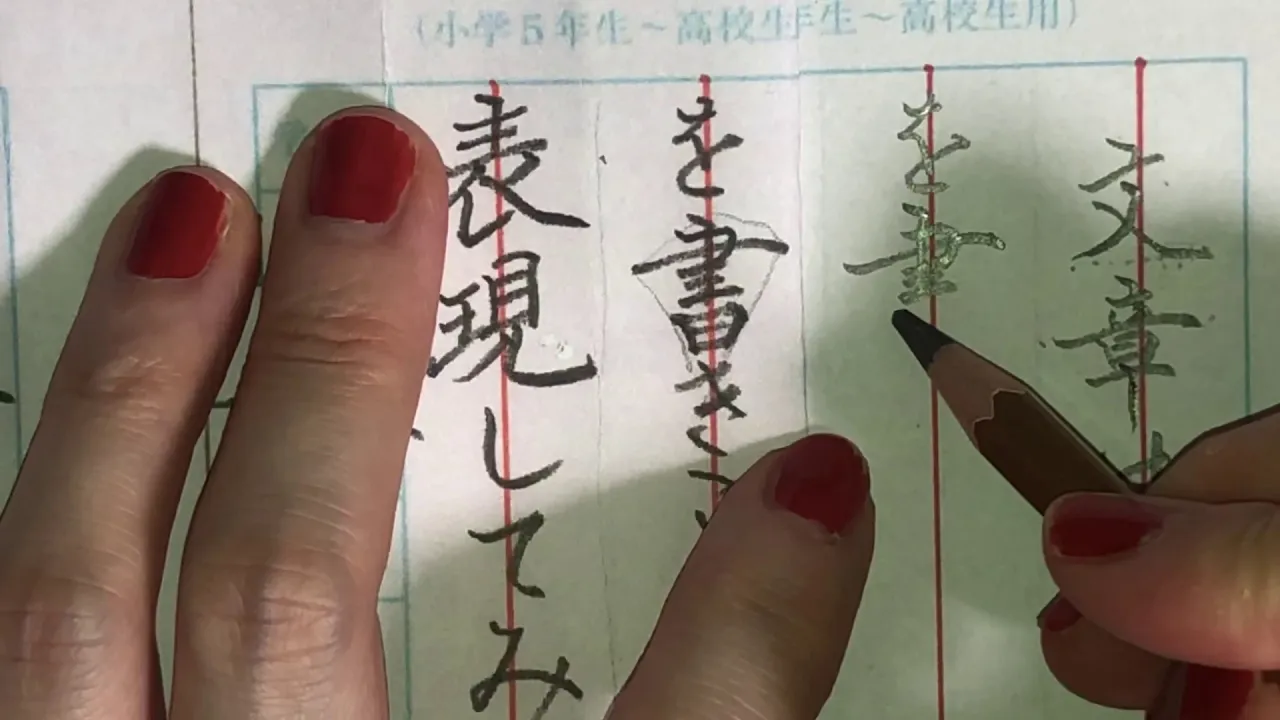 （小学５年生～高校生年生～高校生用）
文章
を
を書き
表現してみ